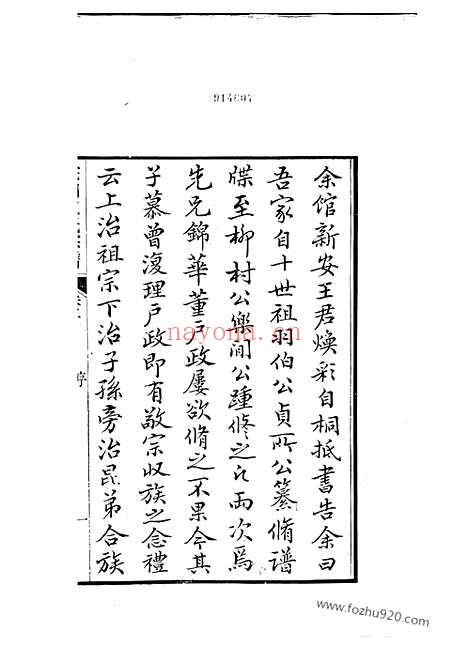 914607
余館新安王君煥彩自桐抵書告余曰
吾家自十世祖羽伯公貞所公纂脩譜
牒至柳村公樂閒公踵修之凡兩次焉
先兄錦華董戶政屢欲脩之不果今其
子慕曾復理戶政即有敬宗収族之念禮
云上治祖宗下治子孫旁治昆弟合族
序
一
nayona.cn
www.fozhu920.com